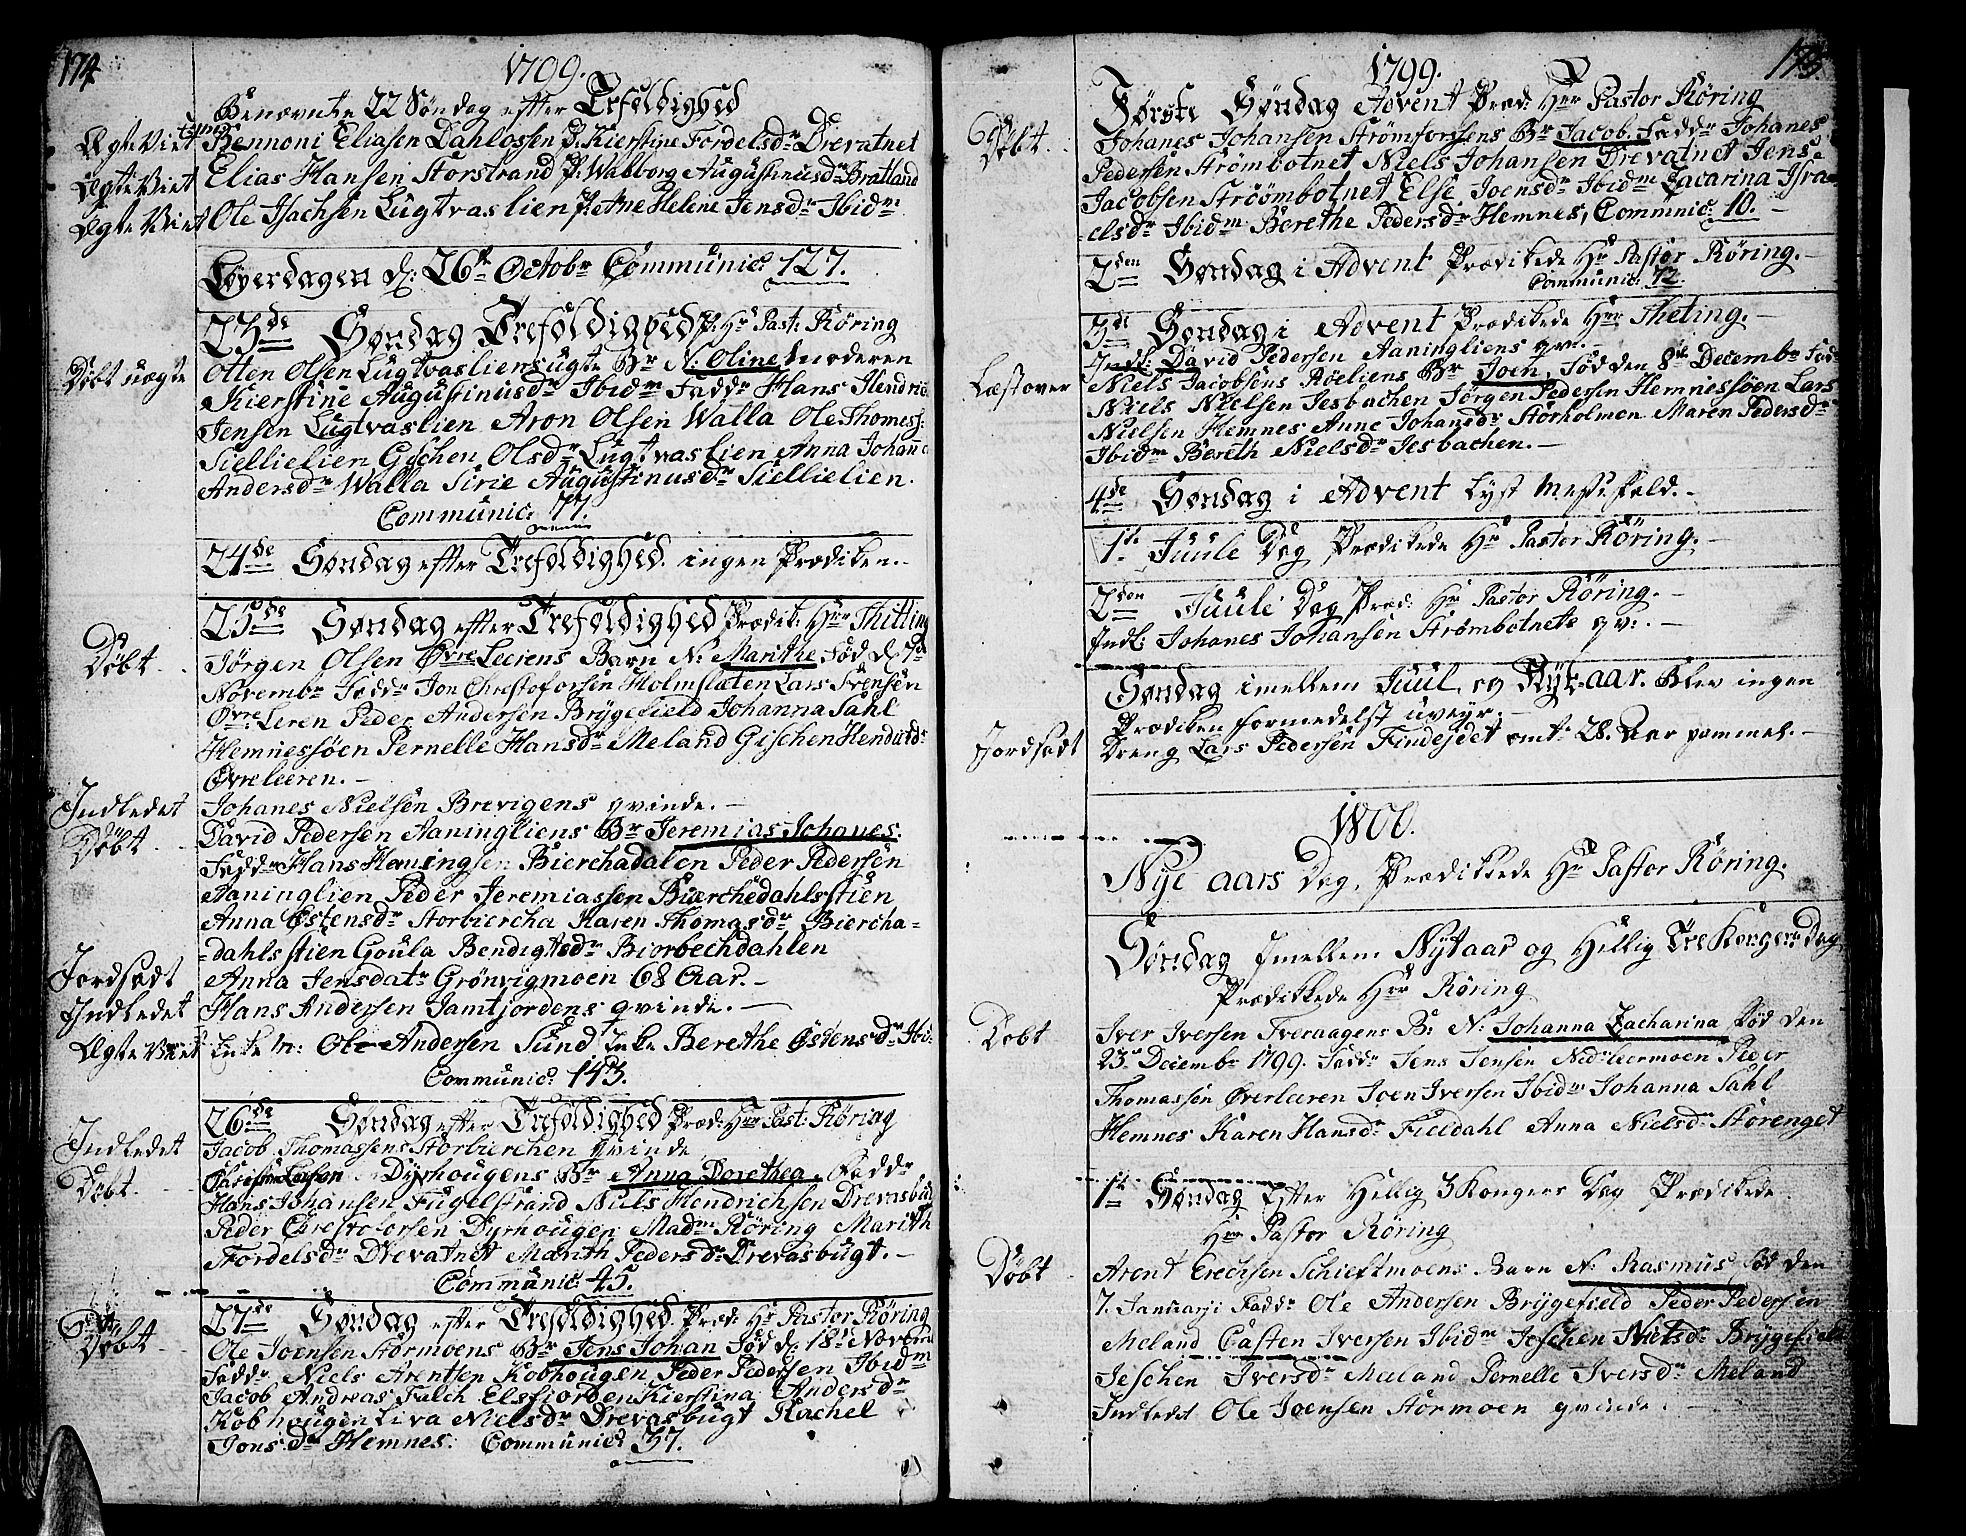 174
1799.
Benævnte 22 Søndag efter Trefoldighed
Ægte Viet Bennoni Eliasen Dahlossen P. Kierstine Fordelsdr Drevatnet
Ægte Viet Elias Hansen Storstrand P. Walborg Augustinusdr Bratland
Ægte Viet Ole Isachsen Lugtvaslien P. Ane Helene Jensdr Ibidm
Løverdagen d: 26de Octobr Communic: 127.
23de Søndag Trefoldighed P. Hr Past: Röring
Døbt uægte Otten Olsen Lugtvasliens ugte Br N: Oline moderen
Kierstine Augustinusdr Ibidm Faddr Hans Hendric
Jensen Lugtvaslien Aron Olsen Walla Ole Thomess:
Siellielien Gischen Olsdr Lugtvaslien Anna Johan
Andersdr Walla Sirie Augustinusdr Siellielien.
Communic: 77.
24de Søndag efter Trefoldighed. ingen Prædiken.
25de Søndag efter Trefoldighed Prædik: Hrr Thitling
Døbt. Jørgen Olsen Øvre Leeiens Barn N: Marithe Fød d: 7de
Novembr Faddr Jon Christoforsen Holmslæten Lars Irensen
Øvre Leren Peder Andersen Brygefield Johanna Sahl
Hemnessöen Pernelle Hansdr Meland Gischen
Øvre leeren.
Indledet Johanes Nielsen Brevigens qvinde.
Døbt. David Pedersen Aaningliens Br Jeremias Johanes.
Faddr Hans Hemingsen Bierchadalen Peder Pedersen
Aaninglien Peder Jeremiassen Bierchedahlsstien
Anna Østensdr Storbiercha Karen Thomasdr Biercha=
=dahlsstien Goula Bendigtsdr Biorbechdahlen
Jordfæst Anna Jensdatr Grönvigmoen 68 Aar.
Indledet Hans Andersen Jamtjordens qvinde.
Ægte Viet Enke M: Ole Andersen Sund Enke Berethe Østensdr Ibid:
Communic: 143.
26de Søndag efter Trefoldighed Præd: Hrr Past: Röring
Indledet Jacob Thomassens Storbierchen qvinde
Døbt. Christen Larsen Dyrhougens Br Anna Dorethea. Faddr
Hans Johansen Fugelstrand Niels Hendrichsen Drevasbugt
Peder Christofersen Dyrhougen Madm Röring Marith
Fordelsdr Drevatnet Marith Pedersdr Drevasbugt.
Communic: 45.
27de Søndag efter Trefoldighed. Præd: Hr Pastor Röring
Døbt. Ole Joensen Stormoens Br Jens Johan Fød d: 18de Novembr
Faddr Niels Arentsen Kobhougen Peder Pedersen Ibidm
Jacob Andreas Falch Elsfiorden Kierstina Andersdr
Kobhougen Liva Nielsdr Drevasbugt Rachel
Jonsdr Hemnes. Communic: 37.
175
1799.
Første Søndag Advent Præd: Hrr Pastor Röring
Døbt. Johanes Johansen Strømforsens Br Jacob. Faddr Johanes
Pedersen Strømbotnet Niels Johansen Drevatnet Jens
Jacobsen Strøombotnet Else Joensdr Ibidm Zacarina Isra
elsdr Ibidm Berethe Pedersdr Hemnes, Communic: 10.
2den Søndag i Advent Prædikede Hr Pastor Röring.
Communic: 72.
3de Søndag i Advent Prædikede Hrr Theting.
Indl: David Pedersen Aaningliens qv:
Læst over Niels Jacobsens Röeliens Br Joen, Fød den 8de Decembr Fadr
Niels Nielsen Jesbachen Jørgen Pedersen Hemnessöen Lars
Nielsen Hemnes Anne Johansdr Storholmen Maren Pedersdr
Ibidm Bereth Nielsdr Jesbachen.
4de Søndag i Advent Lyst Messefald.
1te Juule Dag Prædikede Hr Pastor Röring.
2den Juule Dag Præd: Hr Pastor Röring.
Indl: Johanes Johansen Strømbotnets qv:
Søndag imellem Juul og Nyt-aar. Blev ingen
Prædiken formedelst uveyr.
Jordfæst Dreng Lars Pedersen Findejdet omt: 28. Aar gammel.
1800.
Nyt aars Dag, Prædikkede Hr Pastor Röring.
Søndag Imellem Nytaar og Hellig Tre Konger Dag
Prædikkede Hrr Röring
Døbt Iver Iversen Tveraagens B: N: Johanna Zacharina Fød den
23de Decembr 1799. Faddr Jens Jensen Nedreleermoen Peder
Thomassen Øverleeren Joen Iversen Ibidm Johanna Sahl
Hemnes Karen Hansdr Fieldahl Anna Nielsdr Storenget
1te Søndag Efter Hellig 3 Kongers Dag Prædikede
Hrr Pastor Röring
Døbt Arent Erechsen Schieftmoens Barn N: Rasmus Fød den
7. Januarji Faddr Ole Andersen Brygefield Peder Pedersen
Meland Casten Iversen Ibidm Jeschen Nielsdr Brygefield
Jeschen Iversdr Meland Pernelle Iversdr Meland
Indledet Ole Joensen Stormoen qvinde.